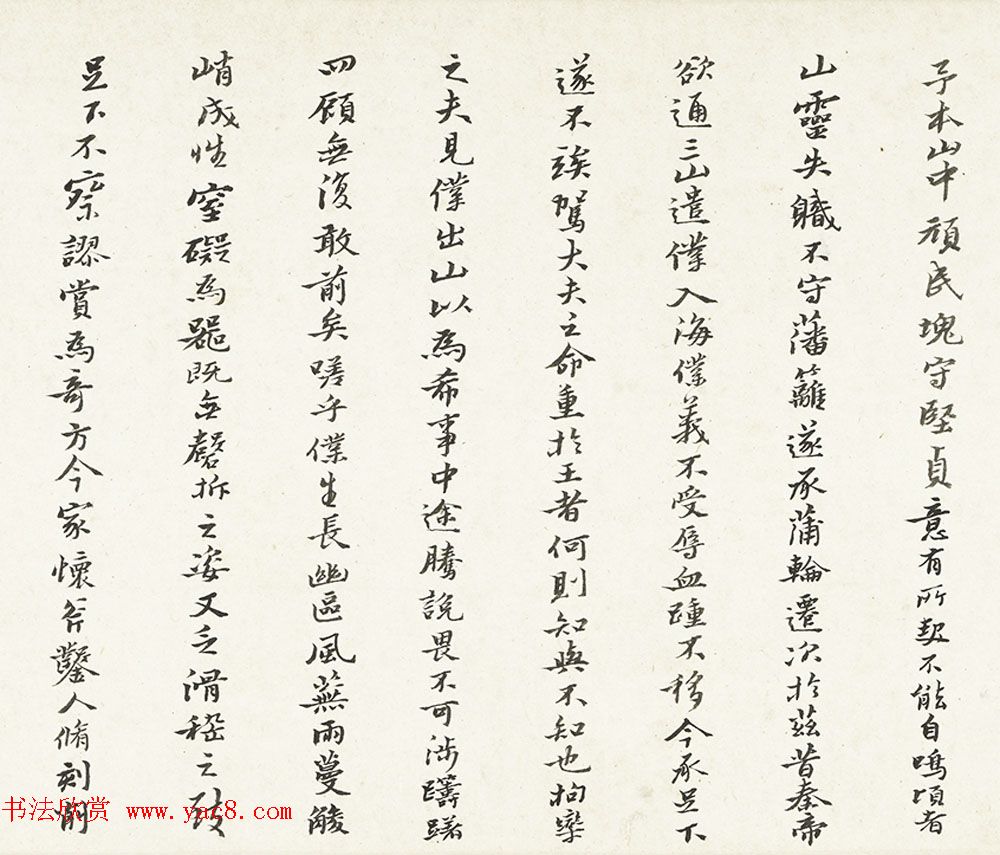 予本山中頑民塊守堅貞意有所報不能自鳴頃者
山靈失職不守藩籬遂承蒲輪遷次於茲昔秦帝
欲通三山遣僕入海僕義不受辱血踵不移今承足下
遂不竢駕大夫之命重於王者何則知與不知也拘欒
之夫見僕出山以為希事中途騰說畏不可涉躊躇
四顧無復敢前矣嗟乎僕生長幽區風蕪雨蔓觚
峭成性窒礙為器既無磬折之姿又乏滑稽之致
足下不察謬賞為奇方今家懷斧鑿人脩刻
书法欣赏 www.yac8.com